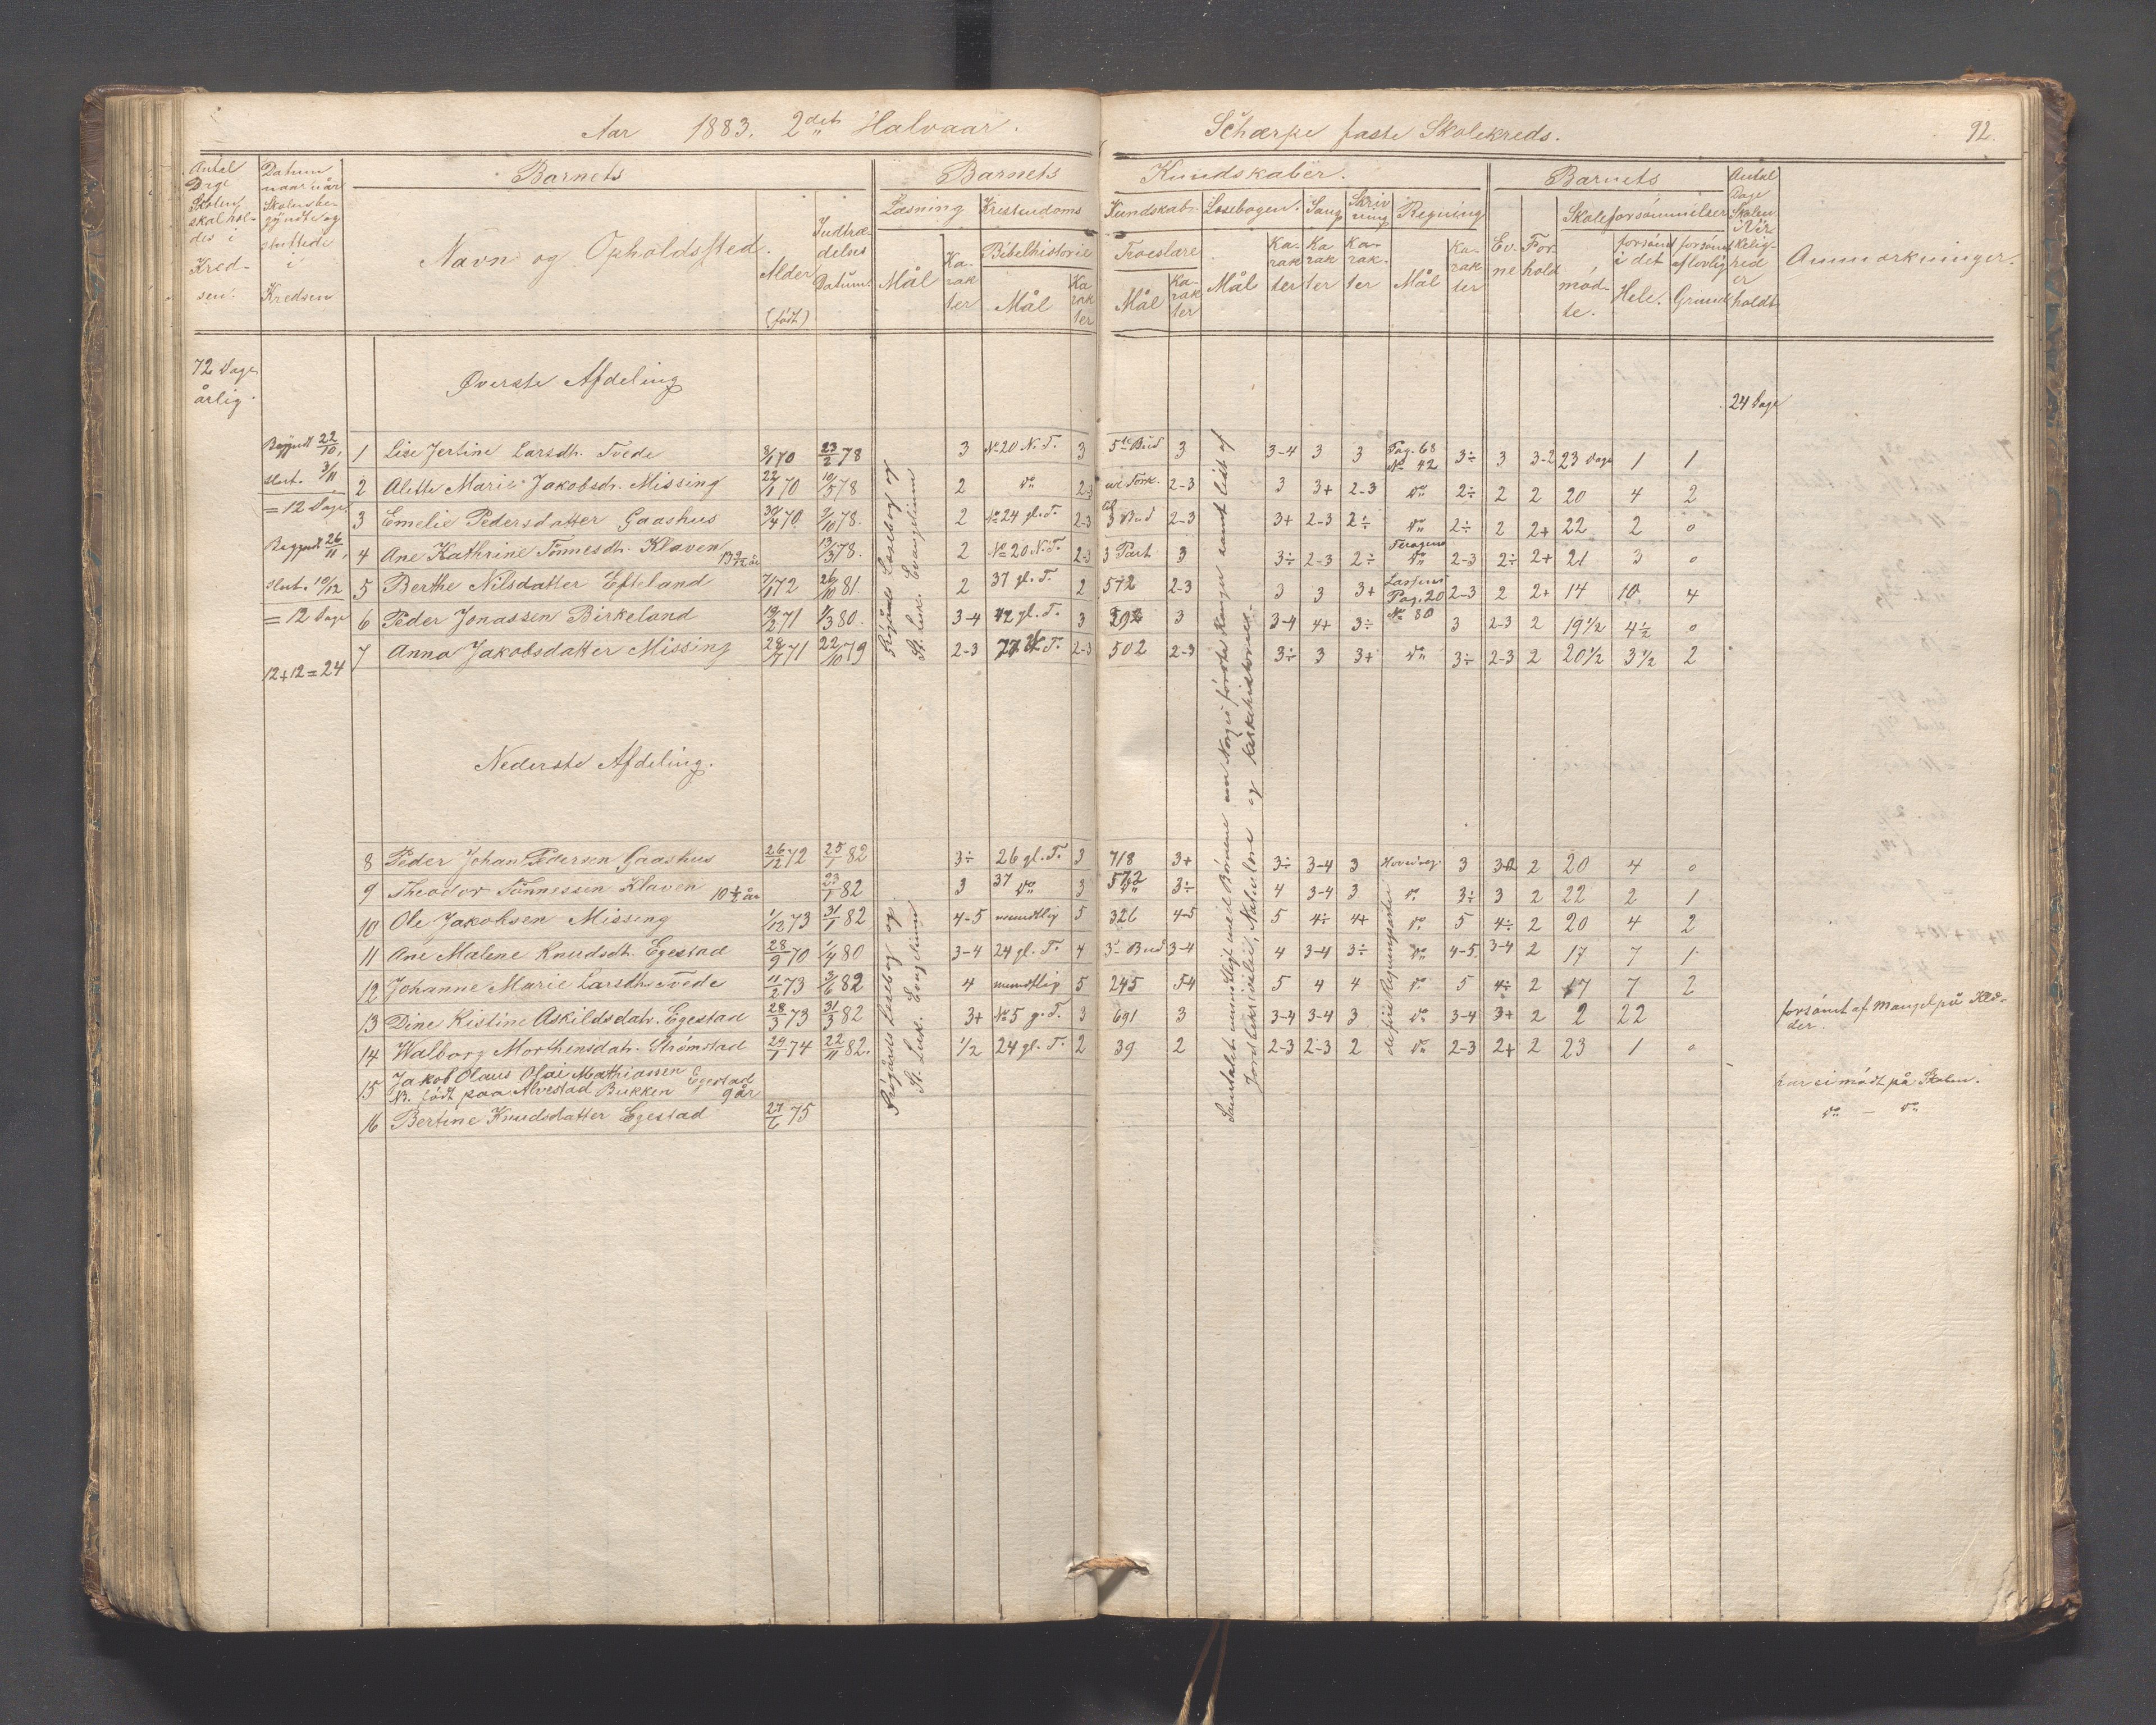 Aar 1883. 2det Halvaar.
Schærpe faste Skolekreds. 92.
Antal Dage Skolen skal holdes i Kredsen.
Datum naar når Skolen begyndte og sluttede i Kredsen
Barnets
Navn og Opholdssted.
Alder (født)
Indtrædelses Datum.
Barnets Kundskaber.
Læsning
Mål
Karakter
Kristendoms Kundskab.
Bibelhistorie
Mål
Karakter
Troeslære
Mål
Karakter
Læsebogen.
Mål
Karakter
Sang
Karakter
Skrivning
Karakter
Regning
Mål
Karakter
Barnets
Evne
Forhold
Skoleforsømmelser
mødte.
forsømt i det Hele.
forsømt af lovlig Grund
Antal Dage Skolen i Virkelighed er holdt
Anmærkninger.
72 Dage årlig.
Øverste Afdeling
24 Dage
Begyndt 22/10,
slut. 3/11
= 12 Dage.
Begyndt 26/11,
slut. 10/12
= 12 Dage
12+12=24
1 Lise Jertine Larsdtr. Tvede 8/1 70 23/2 78 3 No 20 N. T. 3 5te Bud 3 3-4 3 3 Pag. 68 No 42 3÷ 3 3-2 23 Dage 1 1
2 Alette Marie Jakobsdr. Missing 22/1 70 10/5 78 2 do 2-3 2-3 3 3+ 2-3 do 2÷ 2 2 20 4 2
3 Emelie Pedersdatter Gaashus 30/4 70 2/10 78. 2 No 24 gl. T. 2-3 3 Bud 2-3 3+ 2-3 2÷ do 2÷ 2 2+ 22 2 0
4 Ane Kathrine Tønnesdtr. Klaven 13/3 78. 2 No 20 N. T. 2-3 3 Part 3 3÷ 2-3 2÷ do 2-3 2÷ 2+ 21 3 0
5 Berthe Nilsdatter Efteland 7/1 72 26/10 81 2 37 gl. T. 2 572 2-3 3 3 3+ Pag. 20 No 80 2-3 2 2+ 14 10 4
6 Peder Jonassen Birkeland 19/2 71 1/3 80. 3-4 42 gl. T. 3 502 3 3-4 4+ 3÷ 3 2-3 2 19 1/2 4 1/2 0
7 Anna Jakobsdatter Missing 71 22/10 79 2-3 N. T. 2-3 502 2-3 3÷ 3 3+ do 3÷ 2-3 2 20 1/2 3 1/2 2
Nederste Afdeling.
8 Peder Johan Pedersen Gaashus 26/12 72 25/1 82 3÷ 26 gl. T. 3 718 3+ 3÷ 3-4 3 3 2 20 4 0
9 Theodor Tønnessen Klaven 10 1/2 år 23/1 82 3 37 do 3 572 3÷ 4 3-4 3 do 3÷ 3 2 22 2 1
10 Ole Jakobsen Missing 1/12 73 31/1 82 4-5 mundtlig 5 326 4-5 5 4÷ 4+ do 5 4÷ 2 20 4 2
11 Ane Malene Knudsdtr. Egestad 28/9 70 1/4 80 3-4 24 gl. T. 4 3. Bud 3-4 4 3-4 3÷ do 4-5 3-4 2 17 7 1
12 Johanne Marie Larsdtr. Tvede 11/2 73 3/6 82 4 mundtlig 5 245 5-4 5 4 4 do 5 4÷ 2 17 7 2
13 Dine Kistine Askildsdatr. Egestad 28/3 73 31/3 82 3+ No 5 g. T. 3 691 3 3-4 3-4 3 do 3-4 3+ 2 2 22 forsømt af Mangel på Klæder.
14 Walborg Morthensdatr. Strømstad 29/1 74 22/11 82. 1/2 24 gl. T. 2 39 2 2-3 2-3 2 do 2-3 2+ 2 23 1 0
15 Jakob Olaus Olai Mathiassen Egestad
NB. født paa Alvestad Bukken 9 år har ei mødt på Skolen.
16 Bertine Knudsdatter Egestad 27/6 75 do – do
Læsebog og St. Luk. Evangelium
Læsebog og St. Luk. Evangelium
Samtalet mundtligt med Børnene om Norges første Konger samt lidt af
Jordbeskrivelse, Naturlære og Kirkehistorie.
de fire Regningsarter